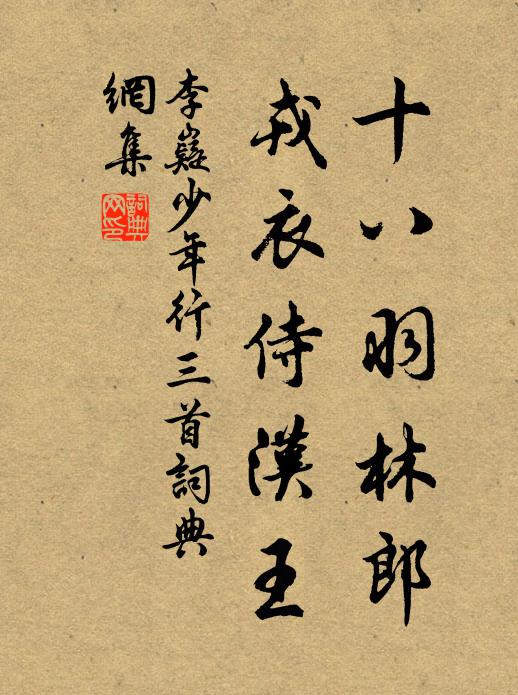 十八羽林郎
戎衣侍漢王
李嶷少年行三首詞典
網集
詞典
网印